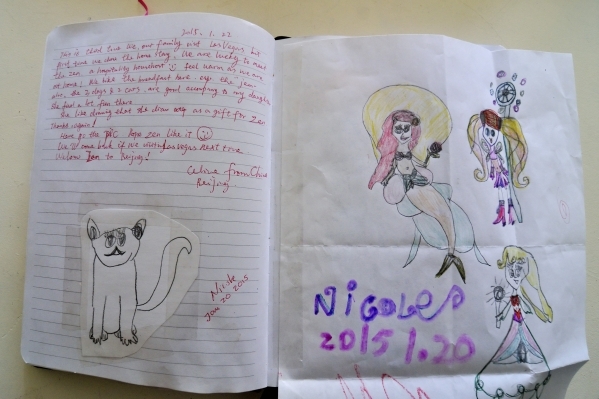 2015. 1. 22
This is third time we, our family visit Las Vegas, but
first time we chose the home stay. We are lucky to meet
the Zen a hospitality household feel warm as we are
at home. We like the breakfast here
the 2 dogs & 2 cats, are good according to my daughter
she feel a lot fun there.
She like drawing that she draw as a gift for Zen
Thanks again!
Here is the pic hope Zen like it
We'll come back if we visit Las Vegas next time.
Welcome Zen to Beijing!
Celine from China
Beijing
Nicole
Jan 20 2015
Nicoles
2015 1.20